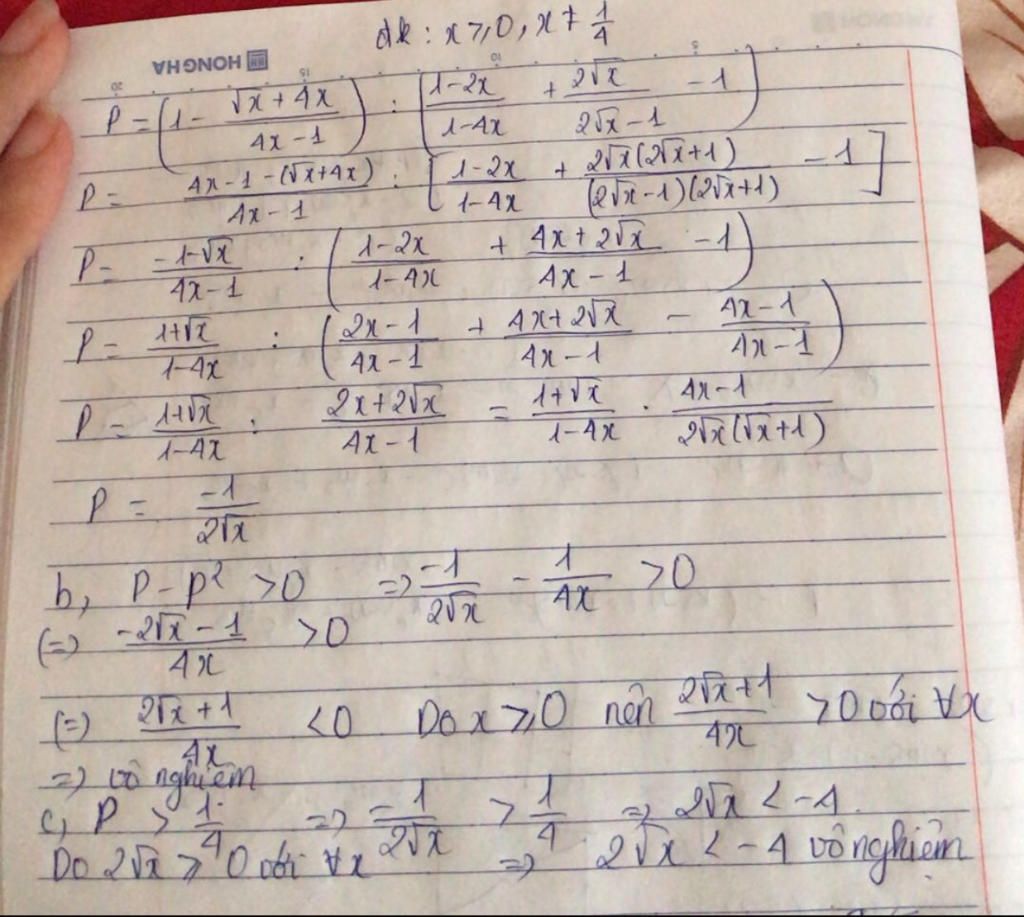 đk : x ≥ 0, x ≠ 1/4
HONG HA
P = (1 - (√x + 4x)/(4x - 1)) : ((1-2x)/(1-4x) + 2√x/(2√x - 1) - 1)
P = (4x - 1 - (√x + 4x))/(4x - 1) : [(1-2x)/(1-4x) + 2√x(2√x+1)/((2√x-1)(2√x+1)) - 1]
P = (-1-√x)/(4x-1) : ((1-2x)/(1-4x) + (4x + 2√x)/(4x - 1) - 1)
P = (1+√x)/(1-4x) : ((2x-1)/(4x-1) + (4x+2√x)/(4x-1) - (4x-1)/(4x-1))
P = (1+√x)/(1-4x) : (2x+2√x)/(4x-1) = (1+√x)/(1-4x) . (4x-1)/(2√x(√x+1))
P = -1/(2√x)
b, P - P² > 0 => -1/(2√x) - 1/(4x) > 0
(=) (-2√x - 1)/(4x) > 0
(=) (2√x + 1)/(4x) < 0 Do x ≥ 0 nên (2√x+1)/(4x) > 0 với ∀x
=) vô nghiệm
c, P > 1/4 => -1/(2√x) > 1/4 => 2√x < -4.
Do 2√x ≥ 0 với ∀x => 2√x < -4 vô nghiệm